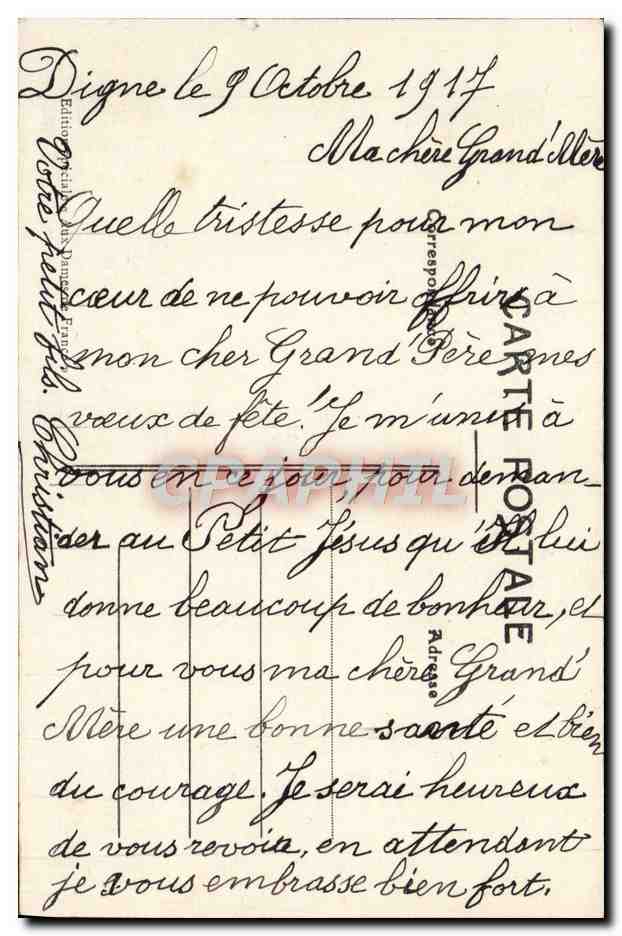 Digne le 9 Octobre 1917
Ma chère Grand'Mère
Quelle tristesse pour mon
cœur de ne pouvoir offrir à
mon cher Grand'Père mes
vœux de fête! Je m'unis à
vous en ce jour, pour deman-
der au Petit Jésus qu'il lui
donne beaucoup de bonheur, et
pour vous ma chère Grand'
Mère une bonne santé et bien
du courage. Je serai heureux
de vous revoir, en attendant
je vous embrasse bien fort.
Votre petit fils. Christian
CARTE POSTALE
Correspondance
Adresse
Edition Spéciale Aux Dames de France
CPAPHIL